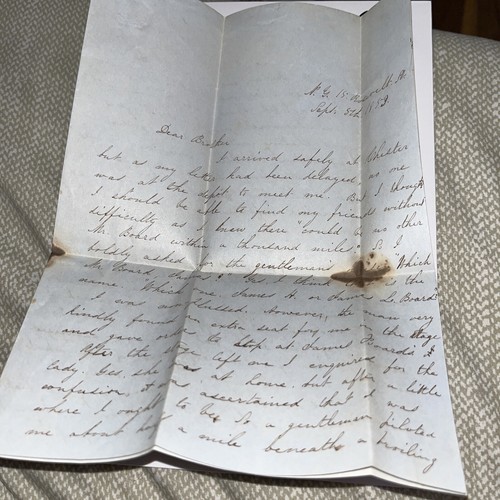 N. Y. 15 Roosevelt St.
Sept. 5th 1853.
Dear Brother
I arrived safely at Chester
but as my letter had been delayed, no one
was at the depot to meet me. But I thought
I should be able to find my friends without
difficulty as I knew there "could be no other
Mr. Board within a thousand miles" So I
boldly asked for the gentleman's Which
Mr. Board Yes I think the
name. Which one, James H. or James L. Board?
I was However, the man very
kindly found an extra seat for me in the stage
and gave orders to stop at James Board's &
After the stage left me I enquired for the
lady. Yes she was at home, but after a little
confusion, it was ascertained that I was
where I ought to be. So a gentleman piloted
me about half a mile beneath a broiling